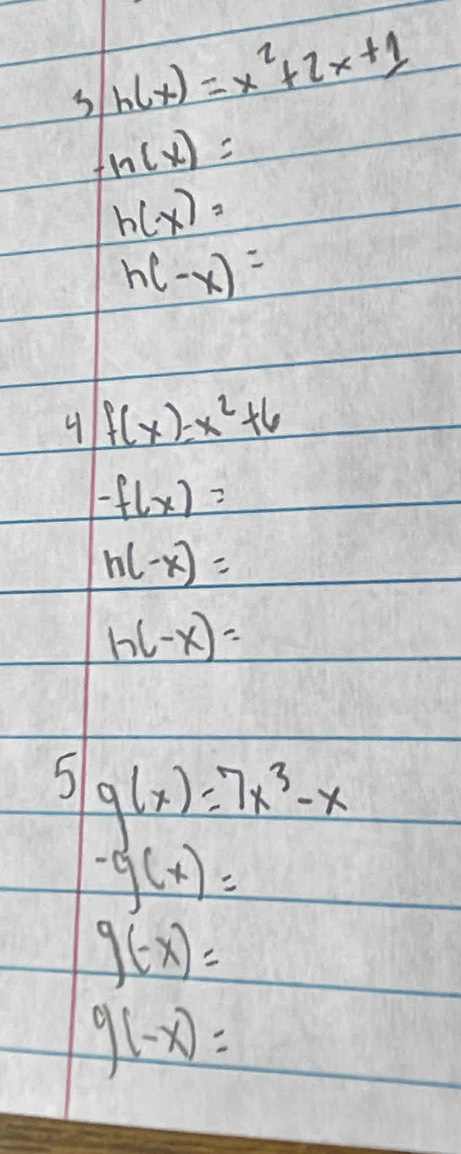 3 h(x) = x² + 2x + 1
-h(x) =
h(-x) =
h(-x) =
4 f(x) = x² + 6
-f(x) =
h(-x) =
h(-x) =
5 g(x) = 7x³ - x
-g(x) =
g(-x) =
g(-x) =